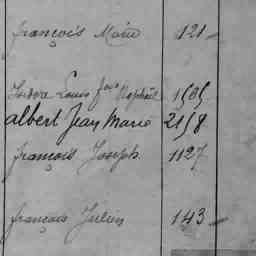 françois Marie 121
Isidore Louis Jean Raphaël 1505
albert Jean Marie 2158
françois Joseph 1127
françois Julien 143